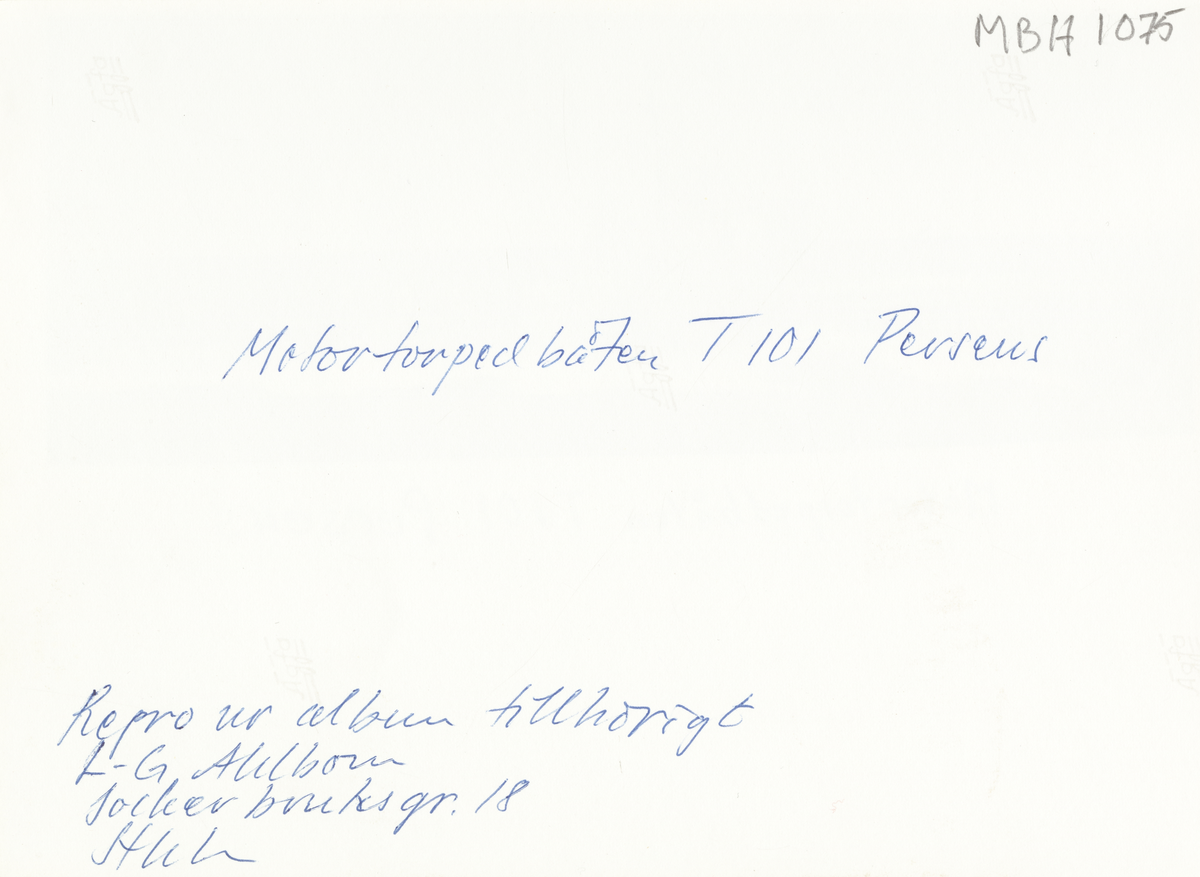 MBH 1075
Motortorpedbåten T 101 Perseus
Repro ur album tillhörigt
L-G. Ahlborn
Sockerbruksgr. 18
Sthlm